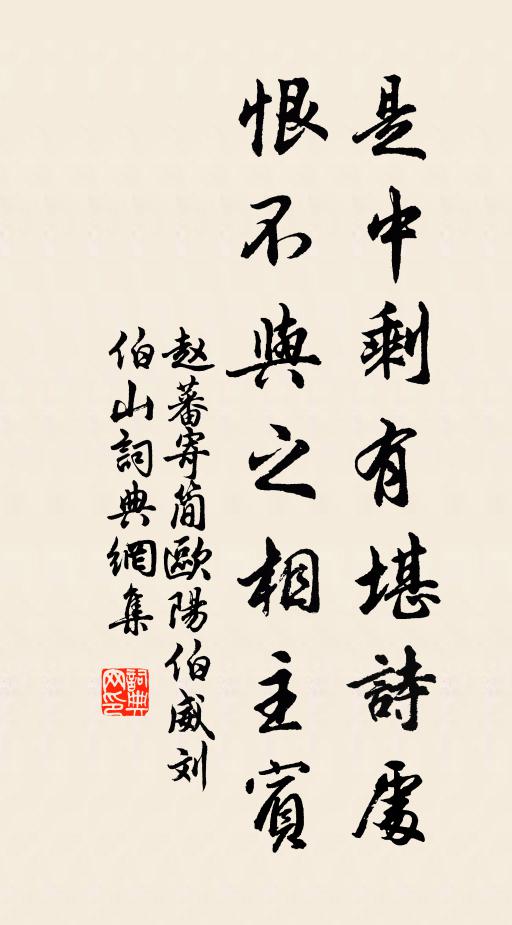 是中剩有堪詩處
恨不與之相主賓
赵蕃寄简歐陽伯威刘
伯山詞典網集
詞典网印